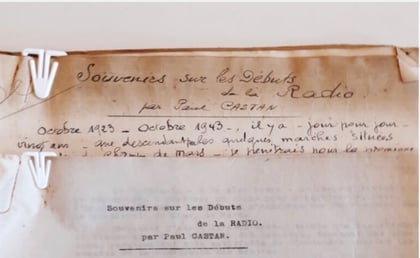 Souvenirs sur les Débuts
de la Radio.
par Paul CASTAN
Octobre 1923 - Octobre 1943 -, il y a - jour pour jour -
vingt ans - que descendant les quelques marches situées
de Mars - je pénétrais pour la première
Souvenirs sur les Débuts
de la RADIO.
par Paul CASTAN.